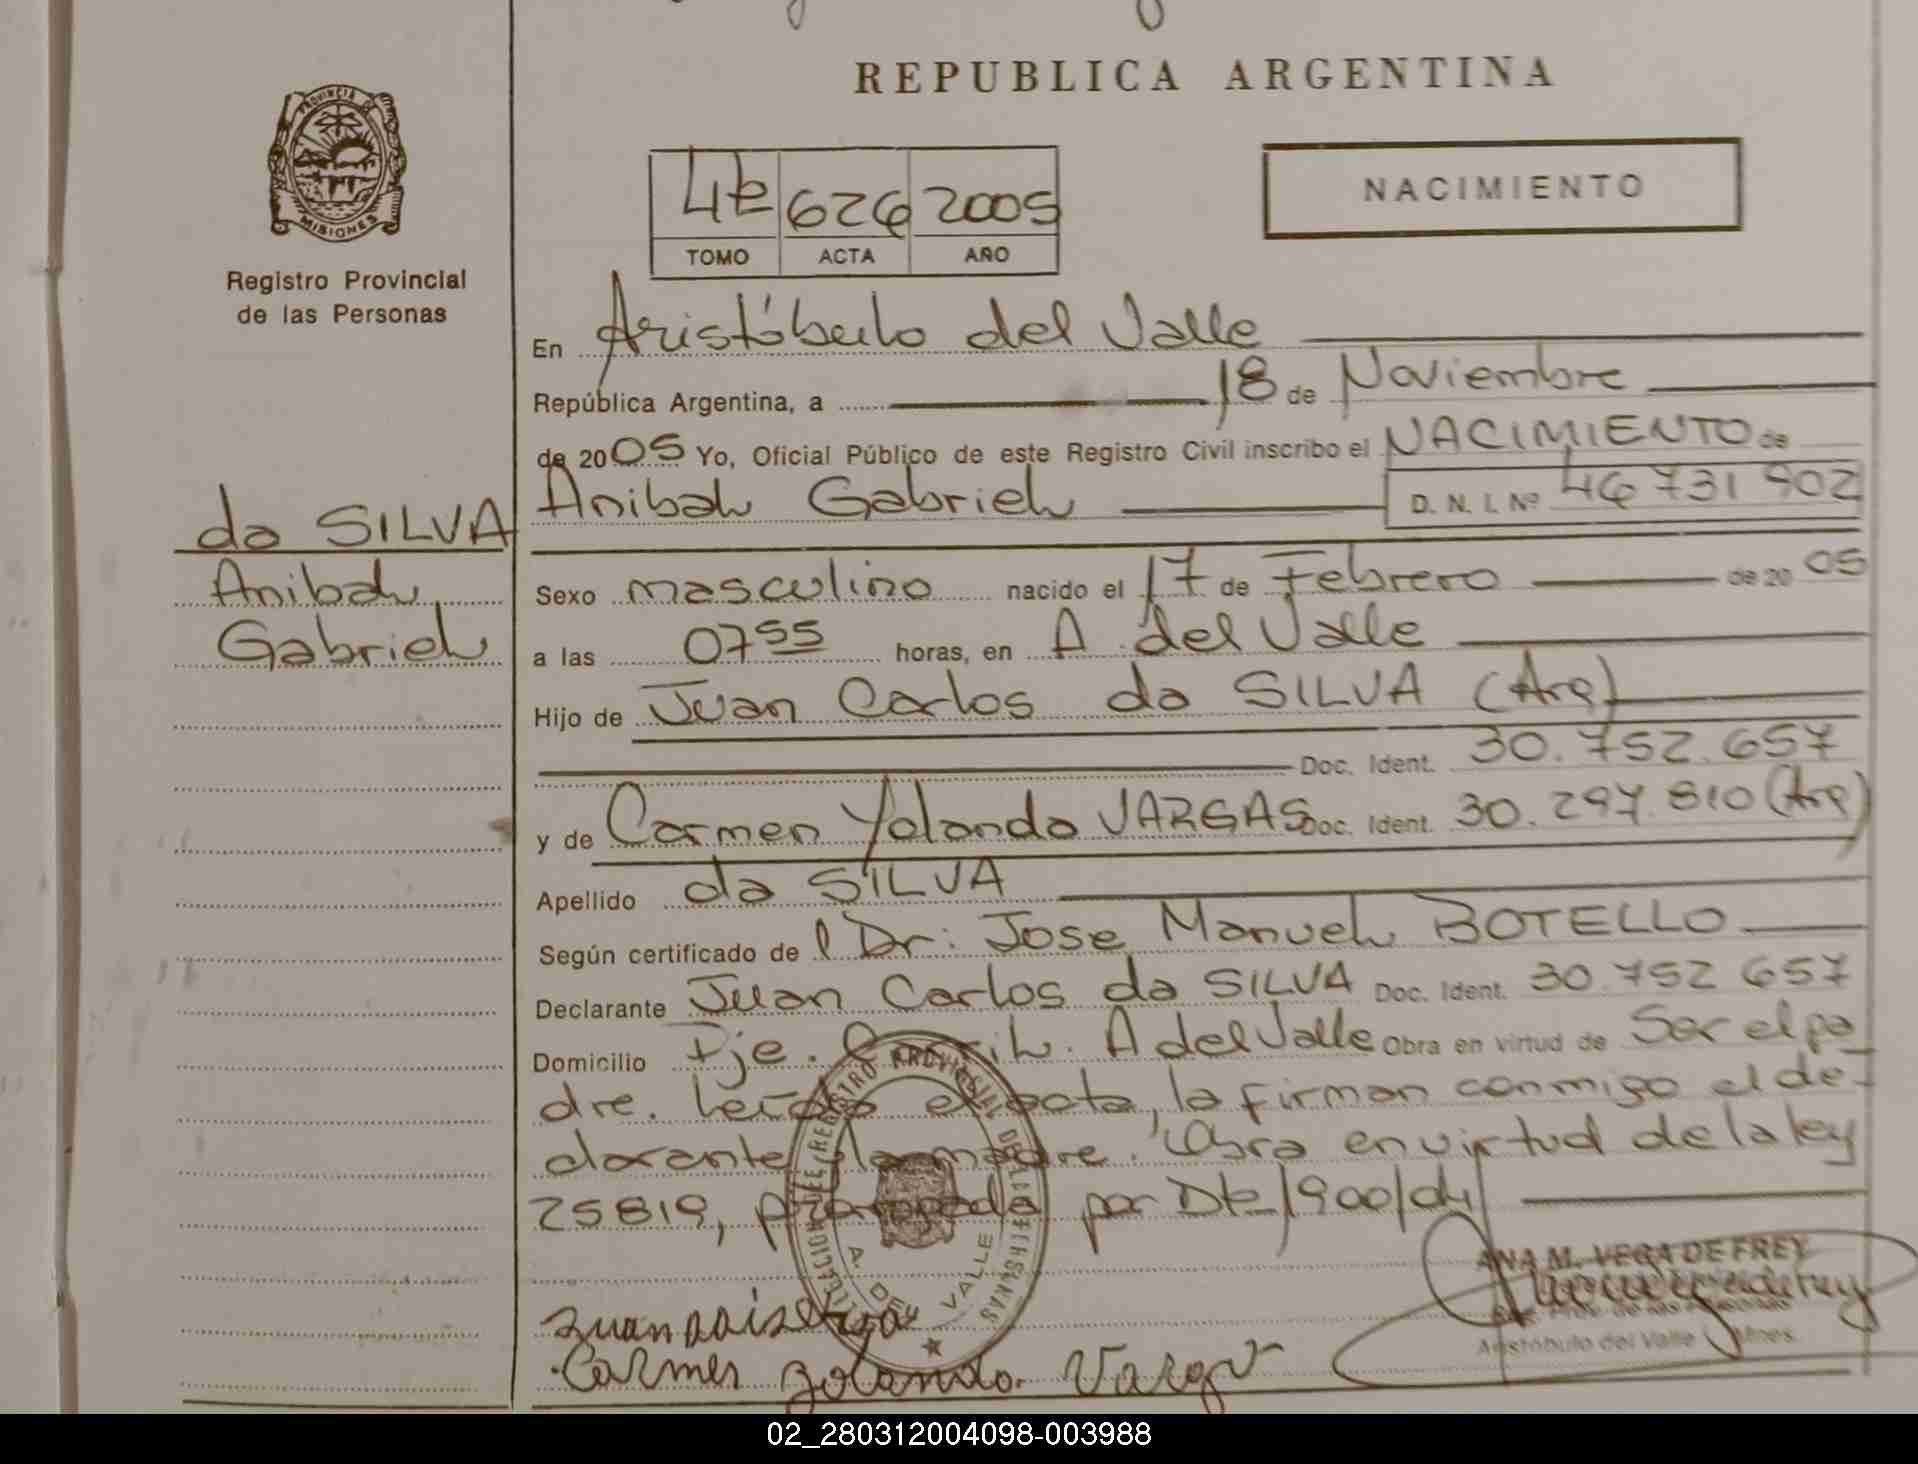 REPUBLICA ARGENTINA
PROVINCIA DE
MISIONES
Registro Provincial
de las Personas
NACIMIENTO
626 2005
TOMO ACTA AÑO
En Aristóbulo del Valle
República Argentina, a 18 de Noviembre
de 2005 Yo, Oficial Público de este Registro Civil inscribo el NACIMIENTO de
Anibal Gabriel D. N. I. Nº 46 731 902
da SILVA
Anibal
Gabriel
Sexo masculino nacido el 17 de Febrero de 2005
a las 07 55 horas, en A. del Valle
Hijo de Juan Carlos da SILVA (Arg)
Doc. Ident. 30.752.657
y de Carmen Yolanda VARGAS Doc. Ident. 30.297.810 (Arg)
Apellido da SILVA
Según certificado de l Dr: Jose Manuel BOTELLO
Declarante Juan Carlos da SILVA Doc. Ident. 30 752 657
Domicilio Pje. A del Valle Obra en virtud de Ser el pa
dre. Leida el acta, la firman conmigo el de-
clarante y la madre. Obra en virtud de la ley
25819, prorrogada por Dto/900/04
A. DEL VALLE
ANA M. VEGA DE FREY
Aristóbulo del Valle Mnes.
Juan
Carmen Yolanda Vargas
02_280312004098-003988